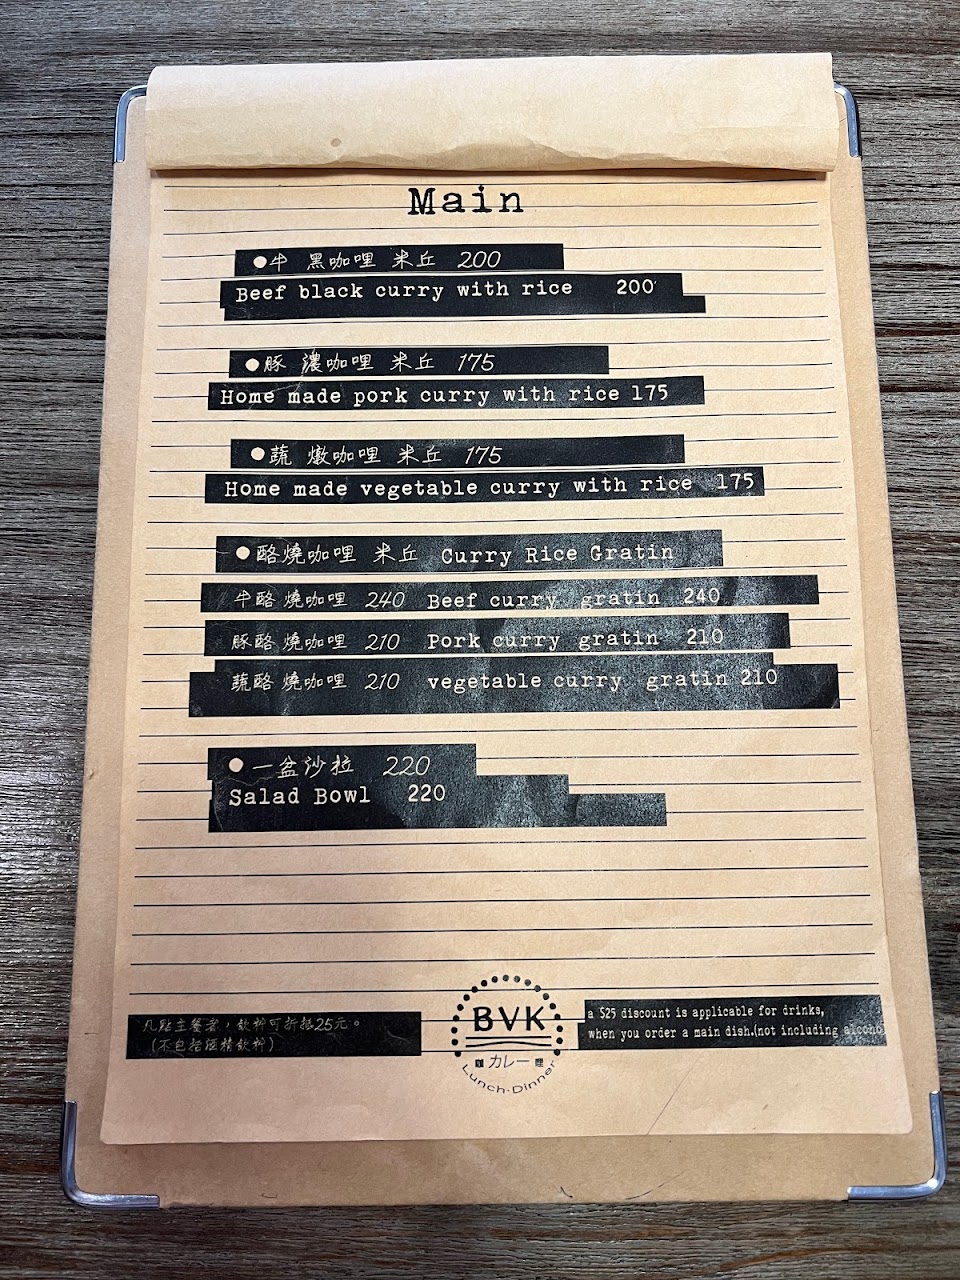 Main
●牛 黑咖哩 米丘 200
Beef black curry with rice 200
●豚 濃咖哩 米丘 175
Home made pork curry with rice 175
●蔬 燉咖哩 米丘 175
Home made vegetable curry with rice 175
●酪燒咖哩 米丘 Curry Rice Gratin
牛酪燒咖哩 240 Beef curry gratin 240
豚酪燒咖哩 210 Pork curry gratin 210
蔬酪燒咖哩 210 vegetable curry gratin 210
●一盆沙拉 220
Salad Bowl 220
凡點主餐者，飲料可折抵25元。
（不包括酒精飲料）
BVK
カレー
Lunch·Dinner
a $25 discount is applicable for drinks,
when you order a main dish.(not including alcoho